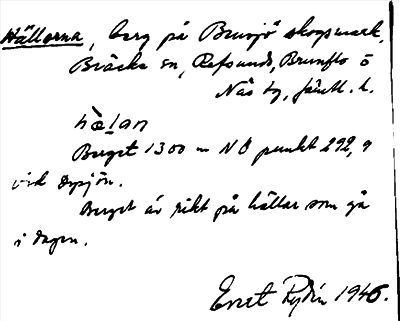 Hällorna, berg på Brunsjö skogsmark,
Bräcke sn, Refsunds, Brunflo o
Näs tg, Jämtl. l.
hälan
Berget 1300 m NO punkt 292,9
vid Dypjön.
Berget är rikt på hällar som gå
i dagen.
Ernst Rydin 1946.